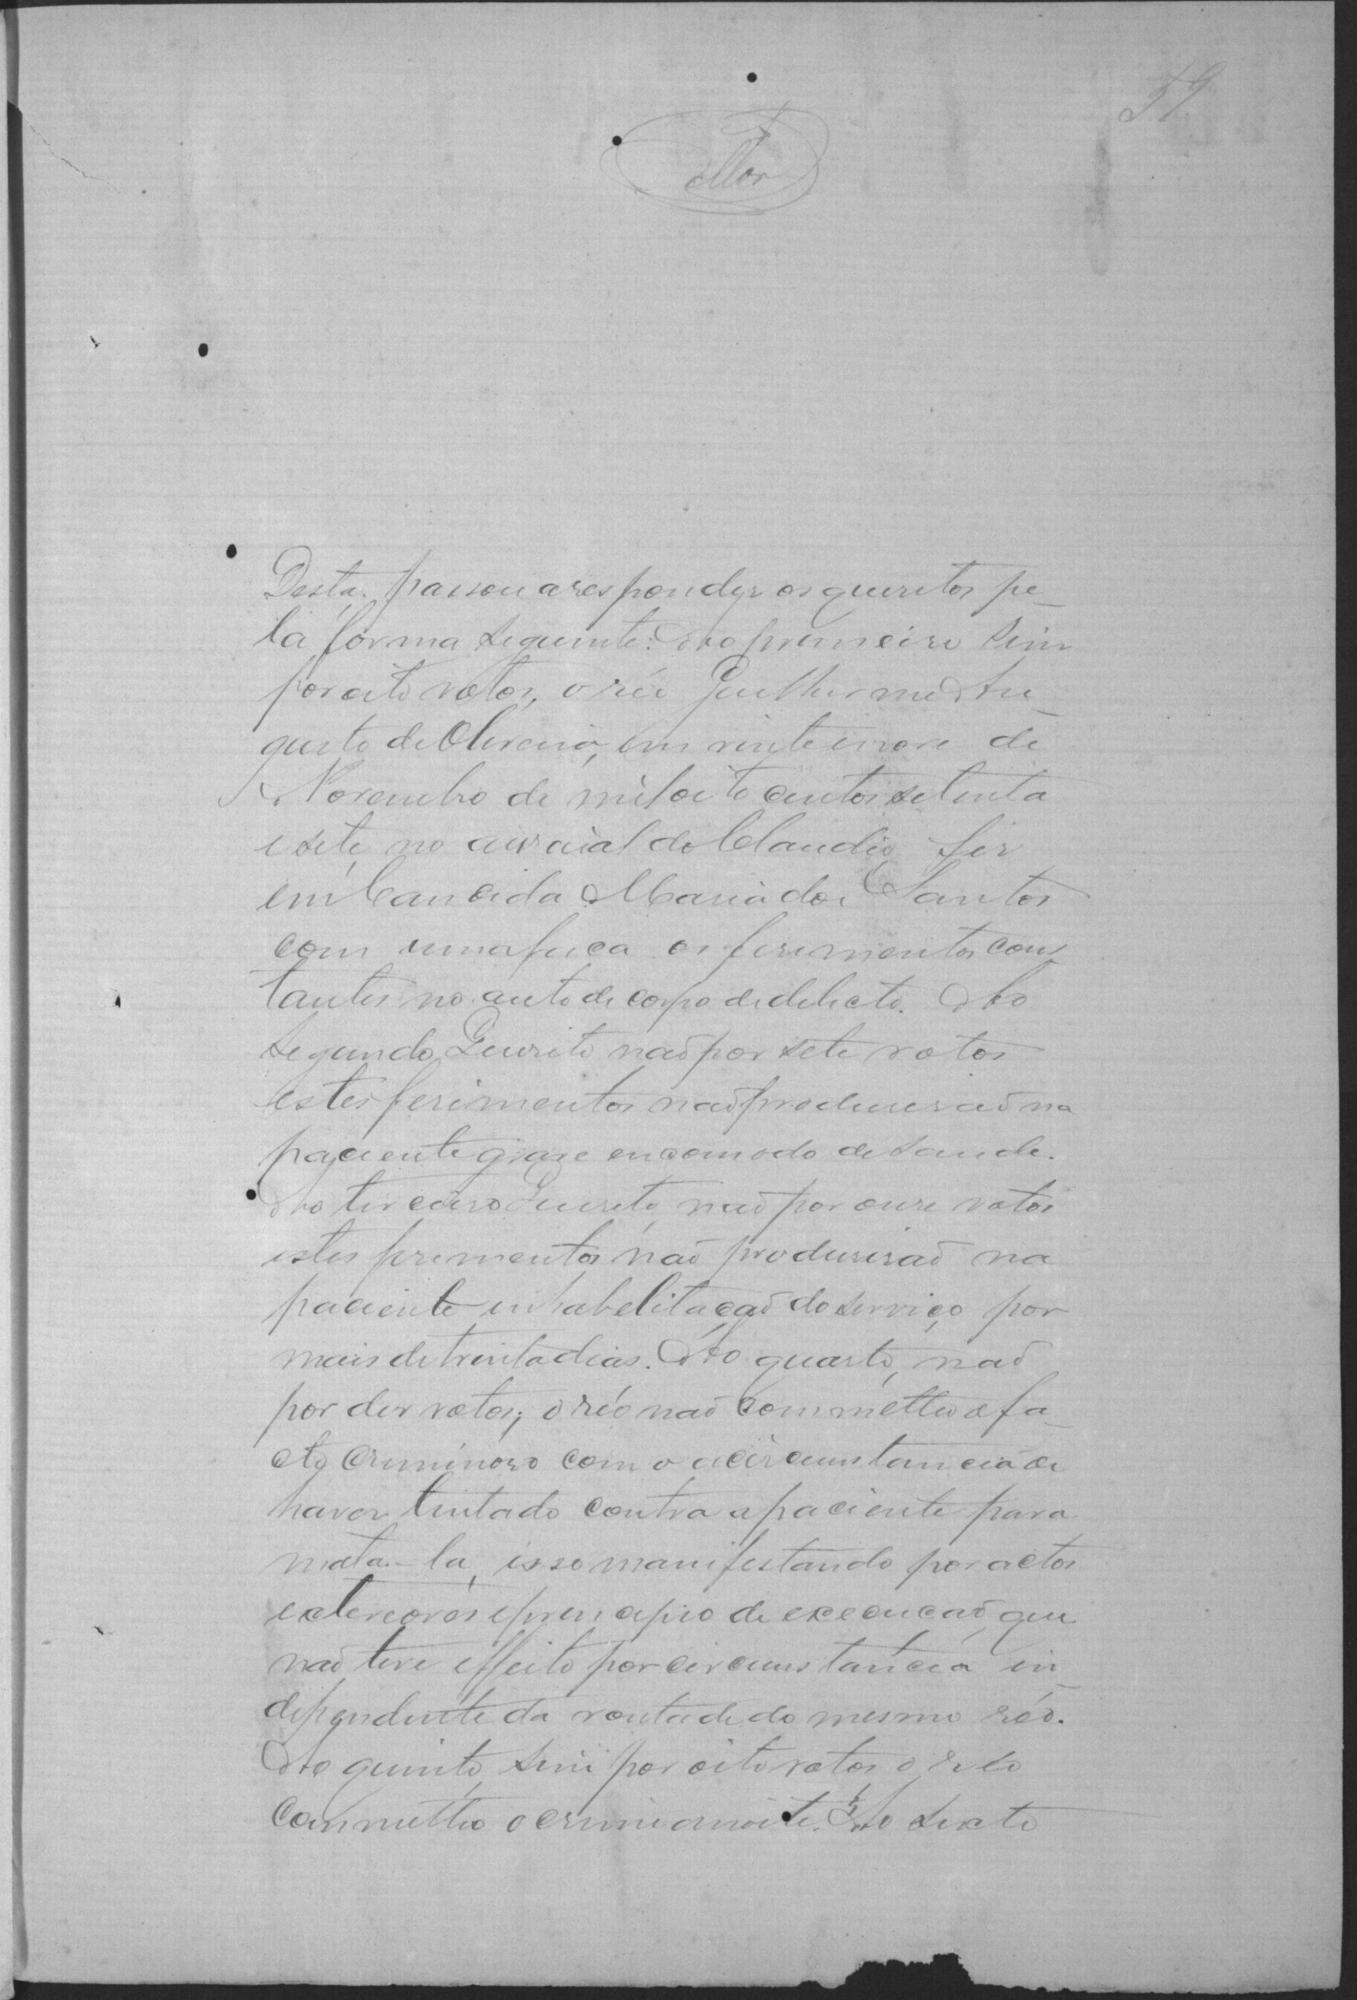 59
Desta. passou a responder os quesitos pe-
la forma seguinte: Ao primeiro Sim
por oito votos, o réo Guilherme Au-
gusto de Oliveira, em vinte e nove de
Novembro de mil oito centos setenta
e sete, no arraial do Claudio, fez
em Candida Maria dos Santos
com uma faca os ferimentos cons
tantes no auto de corpo de delicto. Ao
segundo Quesito não por sete votos
estes ferimentos não produzirão na
paciente grave encomodo de saude.
Ao terceiro Quesito, não por onze votos
estes ferimentos não produzirão na
paciente inhabelitação do serviço por
mais de trinta dias. Ao quarto, não
por dez votos; o réo não commetteo o fa-
cto criminoso com a circumstancia de
haver tentado contra a paciente para
mata-la, isso manifestando por actos
exteriores e principio de execução, que
não teve effeito por circumstancia in
dependente da vontade do mesmo réo.
Ao quinto, sim por oito votos o réo
commetteo o crime a noite. Ao sexto